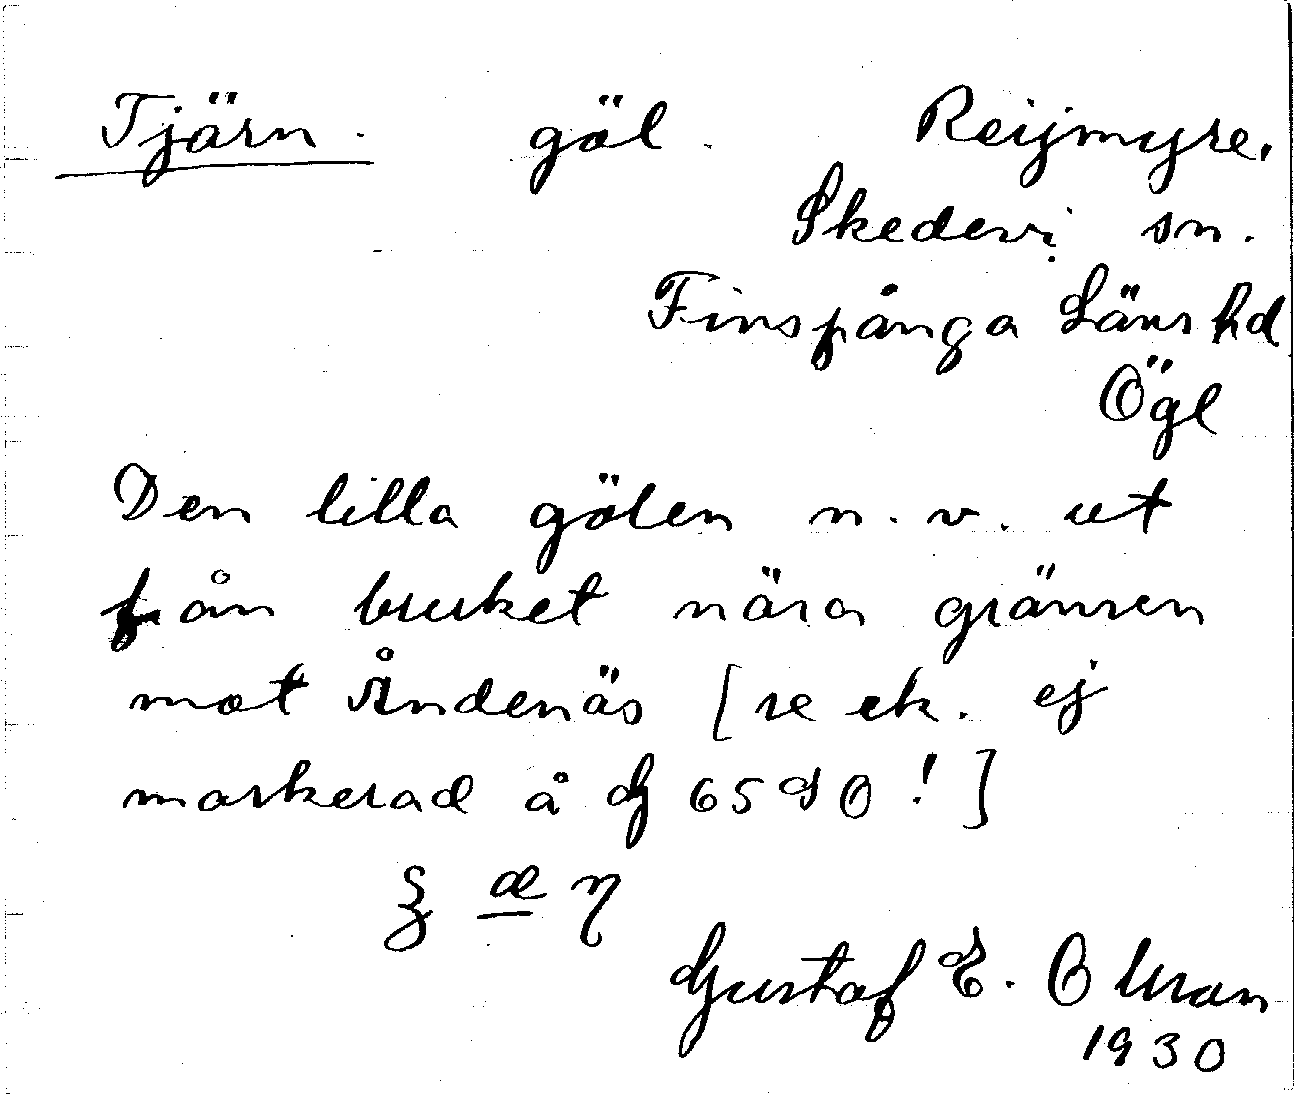 Tjärn. göl. Reijmyre.
Skedevi sn.
Finspånga Läns hd
Ögl
Den lilla gölen n. v. ut
från bruket nära gränsen
mot Ändenäs [se ek. ej
markerad å G 65 SO! ]
Gustaf E. Olsson
1930